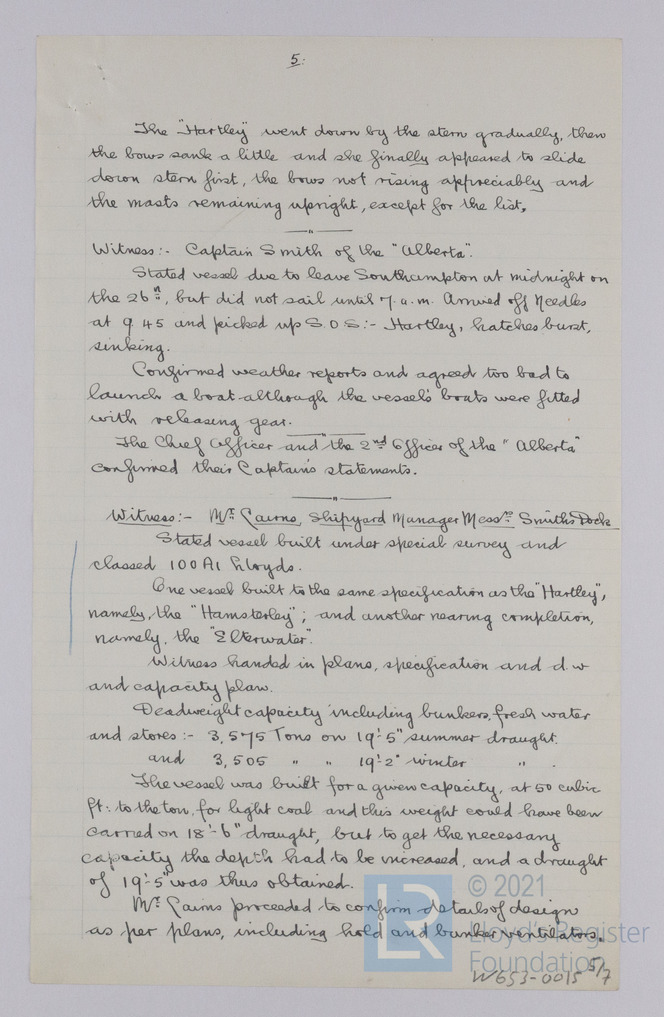 5.
The "Hartley" went down by the stern gradually, then
the bows sank a little and she finally appeared to slide
down stern first, the bows not rising appreciably and
the masts remaining upright, except for the list.
Witness:- Captain Smith of the "Alberta".
Stated vessel due to leave Southampton at midnight on
the 26th, but did not sail until 7 a.m. Arrived off Needles
at 9 45 and picked up S.O.S:- Hartley, hatches burst,
sinking.
Confirmed weather reports and agreed too bad to
launch a boat although the vessel's boats were fitted
with releasing gear.
The Chief Officer and the 2nd Officer of the "Alberta"
confirmed their Captain's statements.
Witness:- Mr Cairns, Shipyard Manager Messrs Smiths Dock
Stated vessel built under special survey and
classed 100A1 Lloyds.
One vessel built to the same specification as the "Hartley",
namely, the "Hamsterley"; and another nearing completion,
namely, the "Elterwater".
Witness handed in plans, specification and d.w
and capacity plan.
Deadweight capacity including bunkers, fresh water
and stores:- 3,575 Tons on 19'-5" summer draught.
and 3,505 " " 19'-2" winter " .
The vessel was built for a given capacity, at 50 cubic
ft: to the ton, for light coal and this weight could have been
carried on 18'-6" draught, but to get the necessary
capacity the depth had to be increased, and a draught
of 19'-5" was thus obtained.
Mr Cairns proceeded to confirm details of design
as per plans, including hold and bunker ventilators.
LR
© 2021
Lloyd's Register
Foundation
W653-0015 5/7